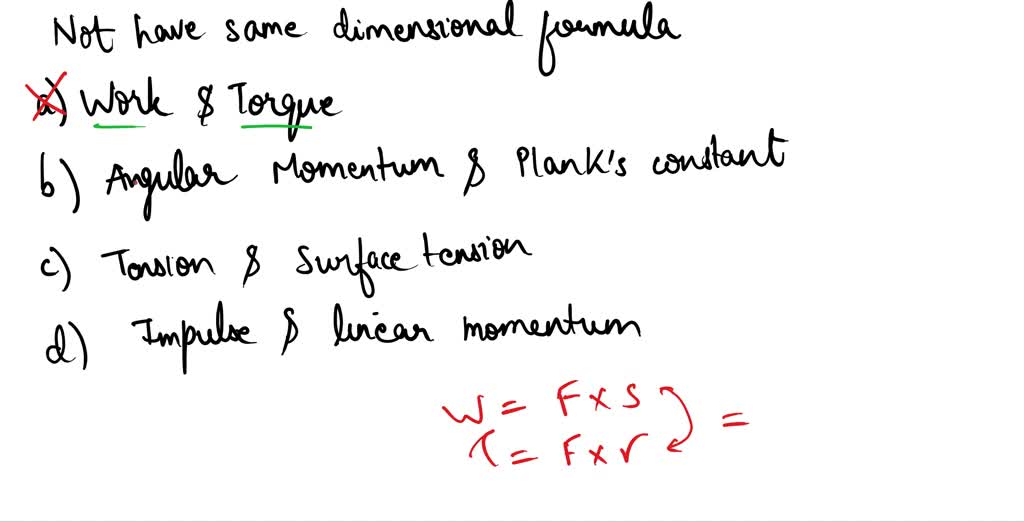 Not have same dimensional formula
a) Work $ Torque
b) Angular Momentum $ Plank's constant
c) Tension $ Surface tension
d) Impulse $ linear momentum
W = F x S
τ = F x r =